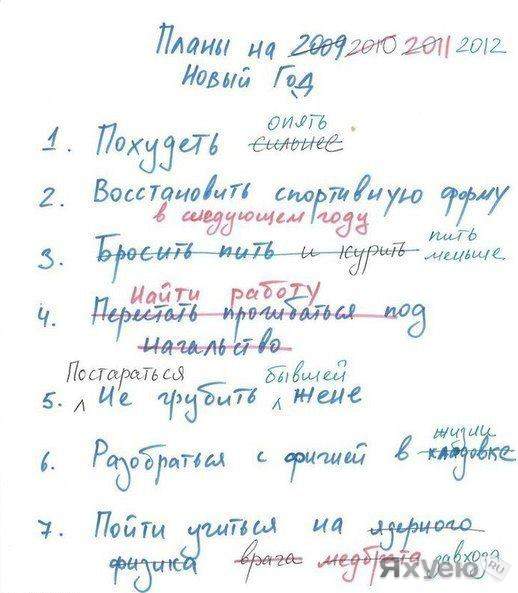 Планы на 2009 2010 2011 2012
Новый Год
опять
1. Похудеть сильнее
2. Восстановить спортивную форму
в следующем году
пить
3. Бросить пить и курить меньше
Найти работу
4. Перестать прогибаться под
начальство
Постараться бывшей
5. Не грубить жене
жизни
6. Разобраться с фигнёй в кладовке
7. Пойти учиться на ядерного
физика врача медбрата завхоза
Яхуею.RU